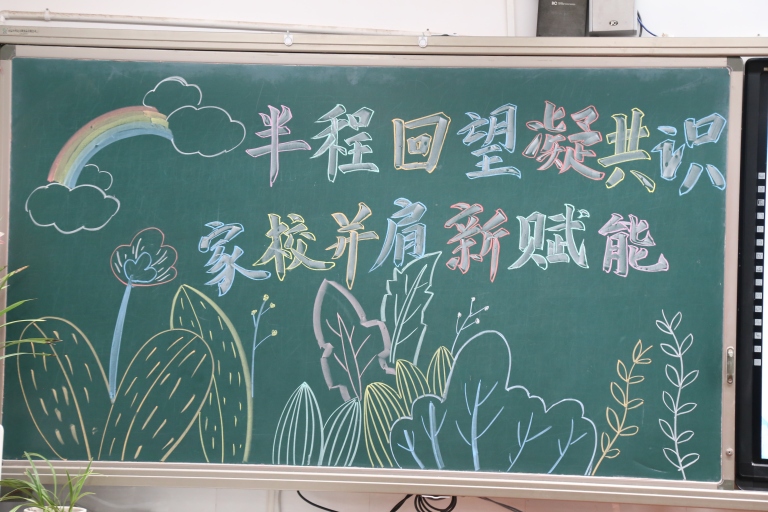 半程回望凝共识
家校并肩新赋能